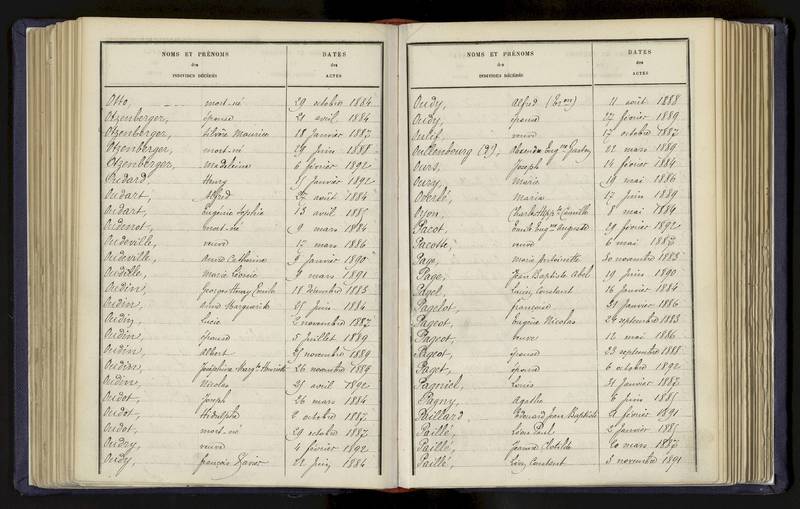 NOMS ET PRÉNOMS
des
INDIVIDUS DÉCÉDÉS
DATES
des
ACTES
Otto, mort-né 29 octobre 1884
Otzenberger, épouse 21 avril 1884
Otzenberger, Silvio Maurice 18 janvier 1887
Otzenberger, mort-né 29 juin 1888
Otzenberger, Madeleine 6 février 1892
Henry janvier 1892
Oudart, Alfred 27 août 1884
Oudart, Eugénie Sophie 13 avril 1885
Oudenot, mort-né 9 mars 1884
Oudeville, veuve 17 mars 1886
Oudeville, Anne Catherine 9 janvier 1890
Oudille, Marie Léonie 9 mars 1891
Oudin, Georges Henry Emile 18 décembre 1883
Oudin, Marguerite juin 1884
Oudin, Lucie 2 novembre 1887
Oudin, épouse 5 juillet 1889
Oudin, Albert novembre 1889
Oudin, Joséphine Margte Henriette 26 novembre 1889
Oudin, Nicolas avril 1892
Oudot, Joseph 26 mars 1884
Oudot, 2 octobre 1887
Oudot, mort-né 29 octobre 1887
Oudry, veuve 4 février 1892
Oudy, François Xavier juin 1884
NOMS ET PRÉNOMS
des
INDIVIDUS DÉCÉDÉS
DATES
des
ACTES
Oudy, Alfred 11 août 1888
Oudy, épouse 27 février 1889
veuve 17 octobre 1887
Oullembourg (d'), Gaston 21 mars 1889
Ours, Joseph 14 février 1884
Oury, Marie 19 mai 1886
Overlé, Maria 17 juin 1889
Oyon, Camille 8 mai 1884
Pacot, Emile Eugne Auguste 29 février 1892
Pacotte, veuve 6 mai 1887
Page, Marie Antoinette 30 novembre 1883
Page, Jean Baptiste Abel 19 juin 1890
Pagel, Louis Constant 16 janvier 1884
Pagelot, Françoise 21 janvier 1886
Pageot, Eugène Nicolas 24 septembre 1883
Pageot, veuve 12 mai 1886
Pageot, épouse 23 septembre 1888
Paget, épouse 6 octobre 1892
Pagniel, Louis 31 janvier 1887
Pagny, Agathe 6 juin 1885
Paillard, Edouard Jean Baptiste février 1891
Paillé, Léon Paul 2 janvier 1885
Paillé, Jeanne Clotilde mars 1887
Paillé, Constant 3 novembre 1891